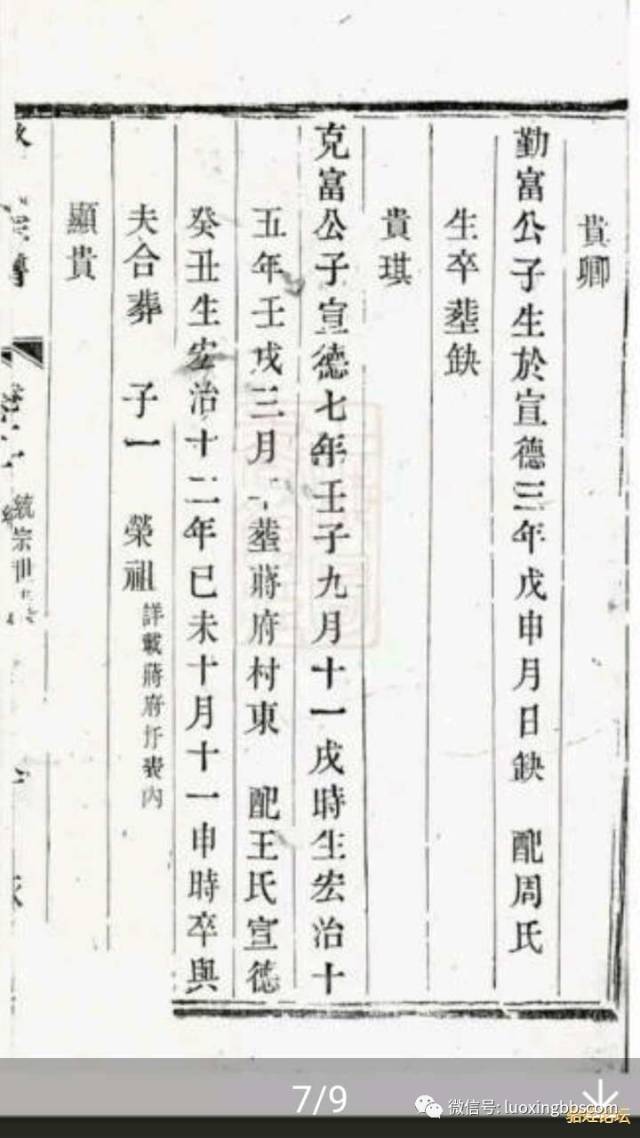 貴卿
勤富公子生於宣德三年戊申月日缺 配周氏
生卒塟缺
貴琪
克富公子宣德七年壬子九月十一戌時生宏治十
五年壬戌三月 塟蔣府村東 配王氏宣德
癸丑生宏治十二年已未十月十一申時卒與
夫合葬 子一 榮祖 詳載蔣府圩表内
顯貴
統宗世
7/9
微信号: luoxingbbscom